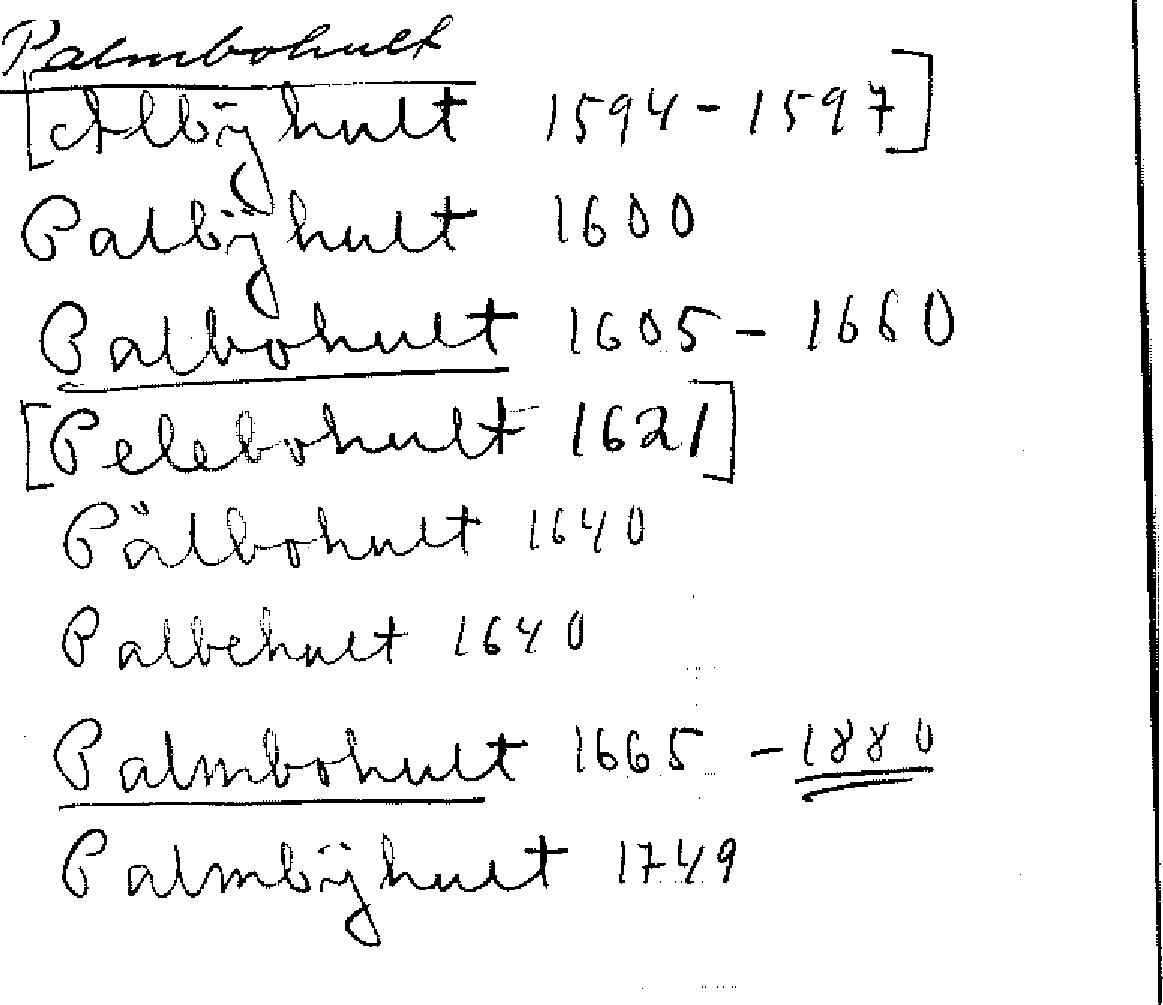 Palmbohult
[Albÿhult 1594-1597]
Palbÿhult 1600
Palbohult 1605-1660
[Pelebohult 1621]
Pälbohult 1640
Palbehult 1640
Palmbohult 1665 - 1880
Palmbÿhult 1749